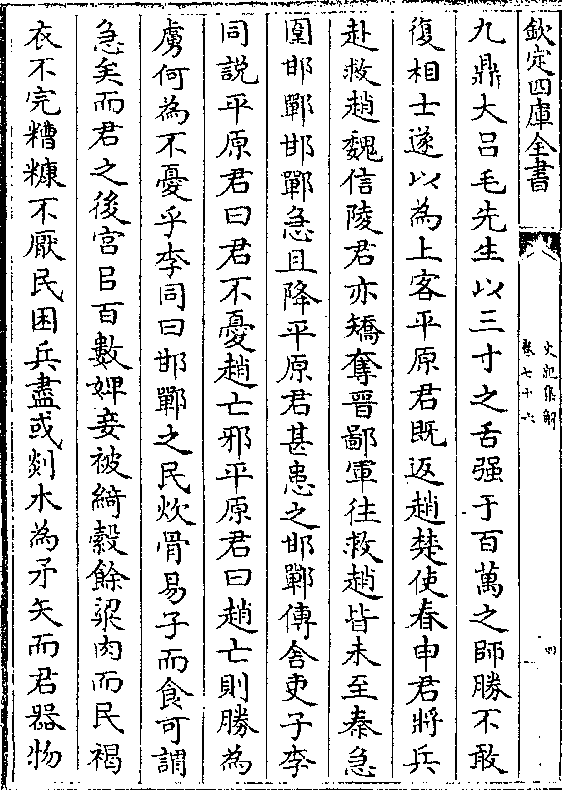 欽定四庫全書
史記集解
卷七十六
四
九鼎大吕毛先生以三寸之舌强于百萬之師勝不敢
復相士遂以為上客平原君既返趙楚使春申君將兵
赴救趙魏信陵君亦矯奪晉鄙軍往救趙皆未至秦急
圍邯鄲邯鄲急且降平原君甚患之邯鄲傳舍吏子李
同說平原君曰君不憂趙亡邪平原君曰趙亡則勝為
虜何為不憂乎李同曰邯鄲之民炊骨易子而食可謂
急矣而君之後宮㠯百數婢妾被綺縠餘粱肉而民褐
衣不完糟糠不厭民困兵盡或剡木為矛矢而君器物